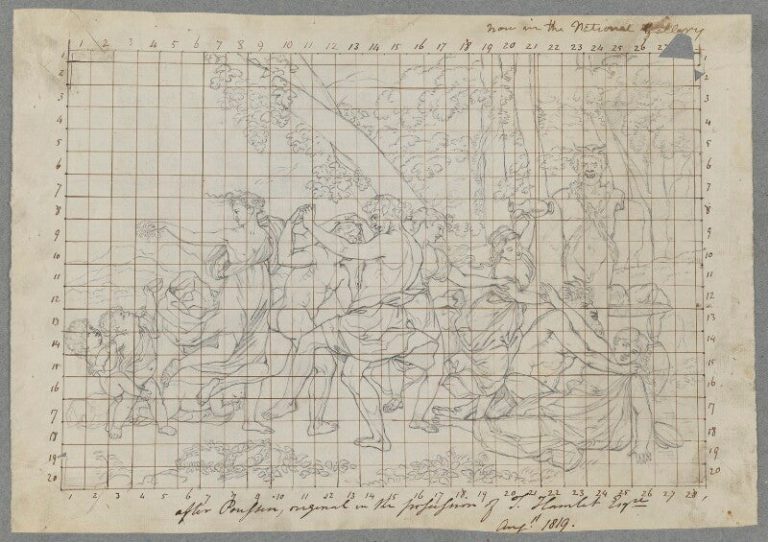 now in the National Gallery
1 2 3 4 5 6 7 8 9 10 11 12 13 14 15 16 17 18 19 20 21 22 23 24 25 26 27
1 1
2 2
3 3
4 4
5 5
6 6
7 7
8 8
9 9
10 10
11 11
12 12
13 13
14 14
15 15
16 16
17 17
18 18
19 19
20 20
1 2 3 4 5 6 7 8 9 10 11 12 13 14 15 16 17 18 19 20 21 22 23 24 25 26 27 28
after Poussin, original in the possession of T. Hamlet Esqre
Augst 1819.